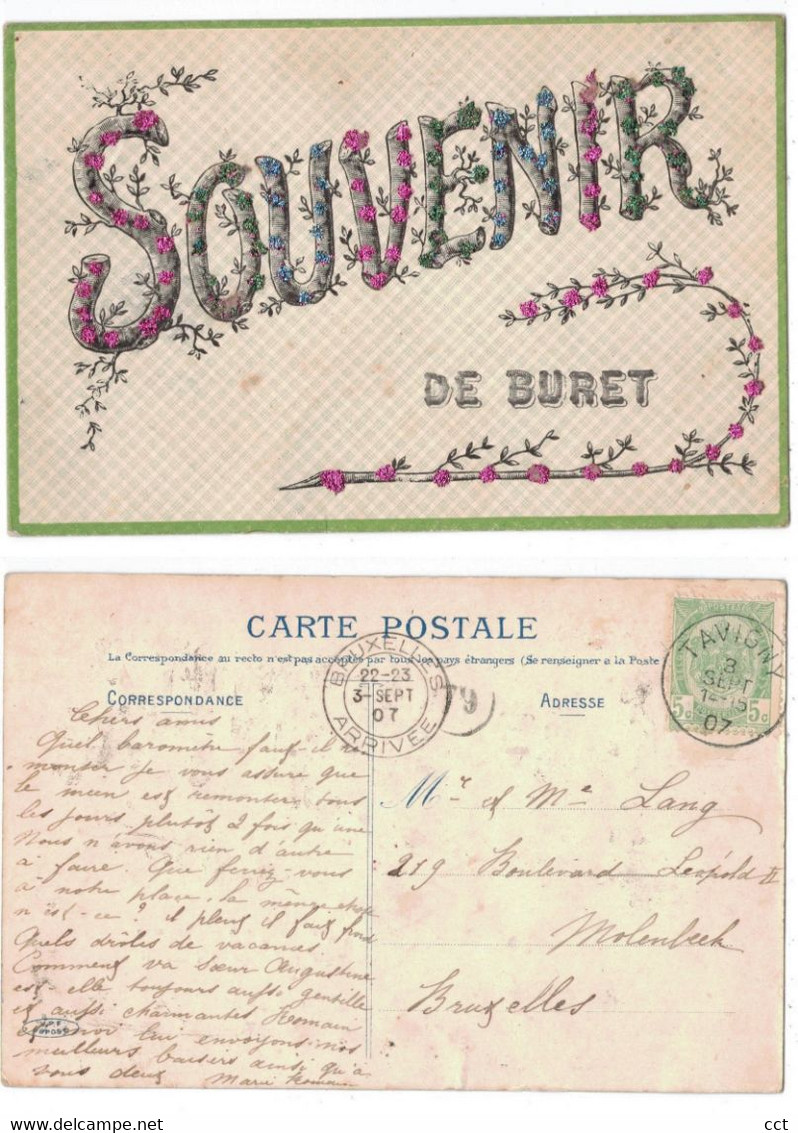 SOUVENIR
DE BURET
CARTE POSTALE
La Correspondance au recto n'est pas acceptée par tous les pays étrangers (Se renseigner a la Poste
CORRESPONDANCE
ADRESSE
BRUXELLES
22-23
3-SEPT
07
ARRIVÉE
79
TAVIGNY
3
SEPT
07
POSTES
5c 5c
Chers amis
Quel baromètre faut-il
monter je vous assure que
le mien est remonter tous
les jours plutot 2 fois qu'une
Nous n'avons rien d'autre
à faire. Que feriez-vous
à notre place, la même chose
n'est-ce? il pleut il fait froid
Quels drôles de vacances
Comment va Sœur Augustine
est-elle toujours aussi gentille
et aussi charmantes Romain
et moi lui envoyons nos
meilleurs baisers ainsi qu'à
vous deux Marie Romain
Mr et Me Lang
219 Boulevard Léopold II
Molenbeek
Bruxelles
cct